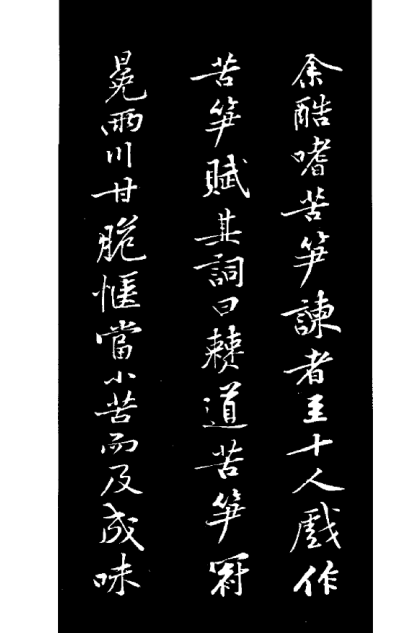 余酷嗜苦笋諫者至十人戲作
苦笋賦其詞曰僰道苦笋冠
冕兩川甘脆愜當小苦而及成味